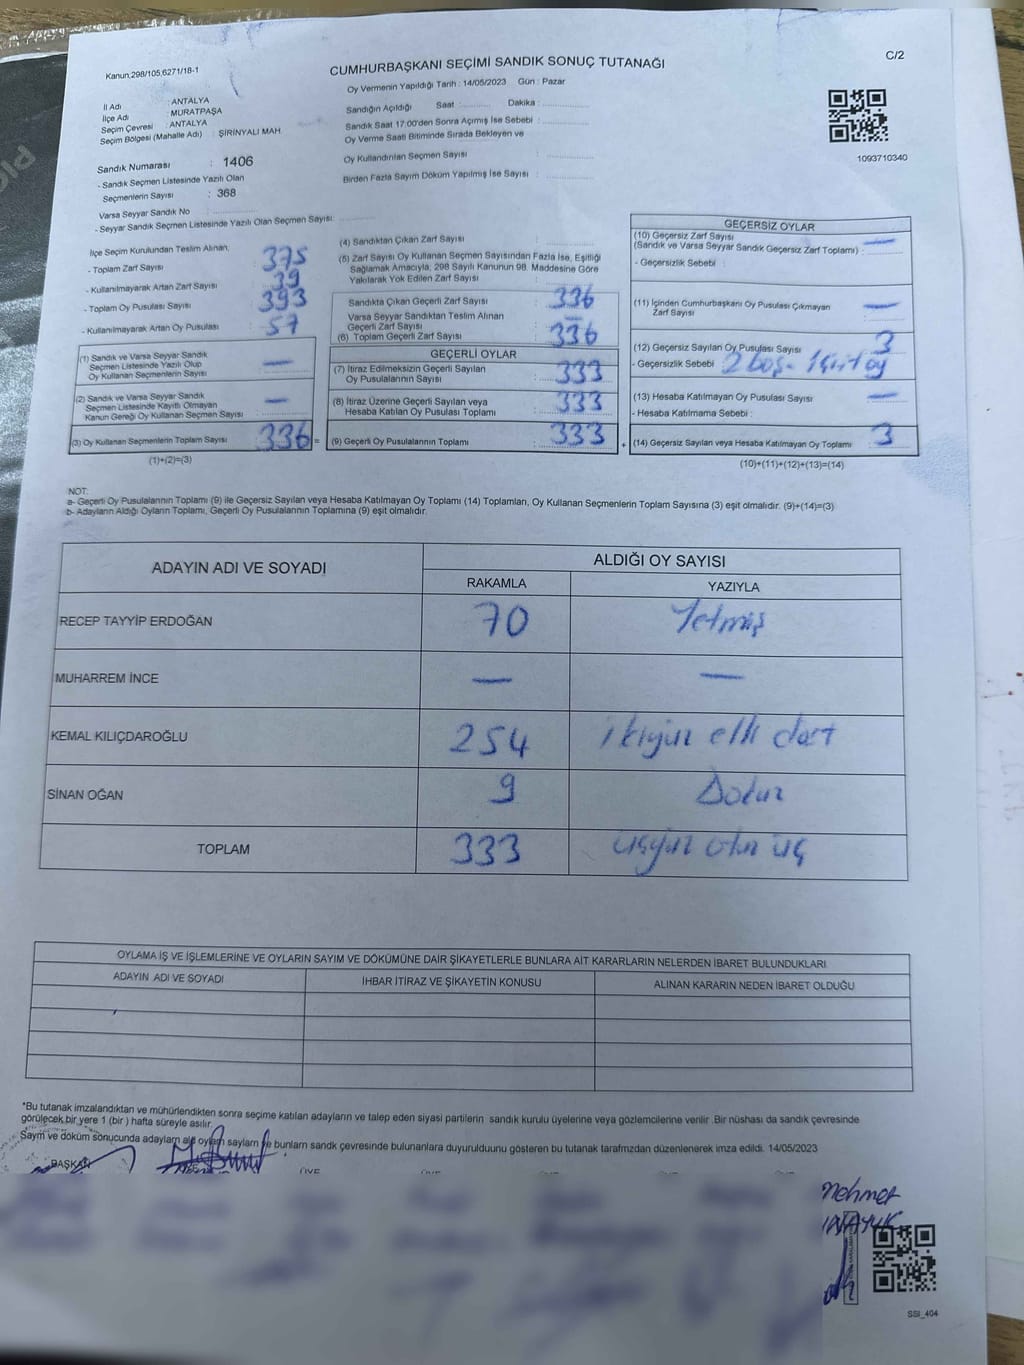 Kanun,298/105,6271/18-1
CUMHURBAŞKANI SEÇİMİ SANDIK SONUÇ TUTANAĞI
C/2
Oy Vermenin Yapıldığı Tarih : 14/05/2023 Gün : Pazar
İl Adı : ANTALYA
İlçe Adı : MURATPAŞA
Seçim Çevresi : ANTALYA
Seçim Bölgesi (Mahalle Adı) : ŞİRİNYALI MAH
Sandığın Açıldığı Saat :............ Dakika :............
Sandık Saat 17:00'den Sonra Açımış İse Sebebi :............
Oy Verme Saati Bitiminde Sırada Bekleyen ve
Oy Kullandırılan Seçmen Sayısı :............
Birden Fazla Sayım Döküm Yapılmış İse Sayısı :............
1093710340
Sandık Numarası : 1406
- Sandık Seçmen Listesinde Yazılı Olan
Seçmenlerin Sayısı : 368
Varsa Seyyar Sandık No :............
- Seyyar Sandık Seçmen Listesinde Yazılı Olan Seçmen Sayısı:............
İlçe Seçim Kurulundan Teslim Alınan;
- Toplam Zarf Sayısı : 375
- Kullanılmayarak Artan Zarf Sayısı : 39
- Toplam Oy Pusulası Sayısı : 393
- Kullanılmayarak Artan Oy Pusulası : 57
(1) Sandık ve Varsa Seyyar Sandık
Seçmen Listesinde Yazılı Olup
Oy Kullanan Seçmenlerin Sayısı : —
(2) Sandık ve Varsa Seyyar Sandık
Seçmen Listesinde Kayıtlı Olmayan
Kanun Gereği Oy Kullanan Seçmen Sayısı : —
(3) Oy Kullanan Seçmenlerin Toplam Sayısı : 336 =
(1)+(2)=(3)
(4) Sandıktan Çıkan Zarf Sayısı :............
(5) Zarf Sayısı Oy Kullanan Seçmen Sayısından Fazla İse, Eşitliği
Sağlamak Amacıyla, 298 Sayılı Kanunun 98. Maddesine Göre
Yakılarak Yok Edilen Zarf Sayısı :............
Sandıkta Çıkan Geçerli Zarf Sayısı : 336
Varsa Seyyar Sandıktan Teslim Alınan
Geçerli Zarf Sayısı : —
(6) Toplam Geçerli Zarf Sayısı : 336
GEÇERLİ OYLAR
(7) İtiraz Edilmeksizin Geçerli Sayılan
Oy Pusulalarının Sayısı : 333
(8) İtiraz Üzerine Geçerli Sayılan veya
Hesaba Katılan Oy Pusulası Toplamı : 333
(9) Geçerli Oy Pusulalarının Toplamı : 333 +
GEÇERSİZ OYLAR
(10) Geçersiz Zarf Sayısı
(Sandık ve Varsa Seyyar Sandık Geçersiz Zarf Toplamı) : —
- Geçersizlik Sebebi :
(11) İçinden Cumhurbaşkanı Oy Pusulası Çıkmayan
Zarf Sayısı : —
(12) Geçersiz Sayılan Oy Pusulası Sayısı : 3
- Geçersizlik Sebebi : 2 boş-
(13) Hesaba Katılmayan Oy Pusulası Sayısı : —
- Hesaba Katılmama Sebebi :
(14) Geçersiz Sayılan veya Hesaba Katılmayan Oy Toplamı : 3
(10)+(11)+(12)+(13)=(14)
NOT:
a- Geçerli Oy Pusulalarının Toplamı (9) ile Geçersiz Sayılan veya Hesaba Katılmayan Oy Toplamı (14) Toplamları, Oy Kullanan Seçmenlerin Toplam Sayısına (3) eşit olmalıdır. (9)+(14)=(3)
b- Adayların Aldığı Oyların Toplamı, Geçerli Oy Pusulalarının Toplamına (9) eşit olmalıdır.
ADAYIN ADI VE SOYADI
ALDIĞI OY SAYISI
RAKAMLA YAZIYLA
RECEP TAYYİP ERDOĞAN 70 Yetmiş
MUHARREM İNCE — —
KEMAL KILIÇDAROĞLU 254 ikiyüz elli dört
SİNAN OĞAN 9 Dokuz
TOPLAM 333 üçyüz otuz üç
OYLAMA İŞ VE İŞLEMLERİNE VE OYLARIN SAYIM VE DÖKÜMÜNE DAİR ŞİKAYETLERLE BUNLARA AİT KARARLARIN NELERDEN İBARET BULUNDUKLARI
ADAYIN ADI VE SOYADI İHBAR İTİRAZ VE ŞİKAYETİN KONUSU ALINAN KARARIN NEDEN İBARET OLDUĞU
*Bu tutanak imzalandıktan ve mühürlendikten sonra seçime katılan adayların ve talep eden siyasi partilerin sandık kurulu üyelerine veya gözlemcilerine verilir. Bir nüshası da sandık çevresinde
görülecek bir yere 1 (bir) hafta süreyle asılır.
Sayım ve döküm sonucunda adayların ald oyların sayıların ve bunların sandık çevresinde bulunanlara duyurulduunu gösteren bu tutanak tarafmzdan düzenlenerek imza edildi. 14/05/2023
BAŞKAN
Mehmet
SSI_404